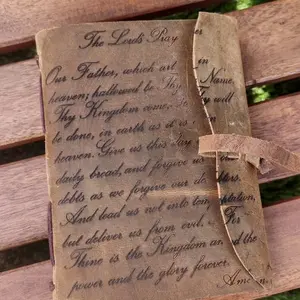 The Lords Pray er
Our Father, which art in
heaven; hallowed be Thy Name.
Thy Kingdom come. Thy will
be done, in earth as it is in
heaven. Give us this day
daily broad, and forgive us
debts as we forgive our debtors.
And lead us not into temptation,
but deliver us from evil. For
Thine is the Kingdom and the
power and the glory forever.
Amen